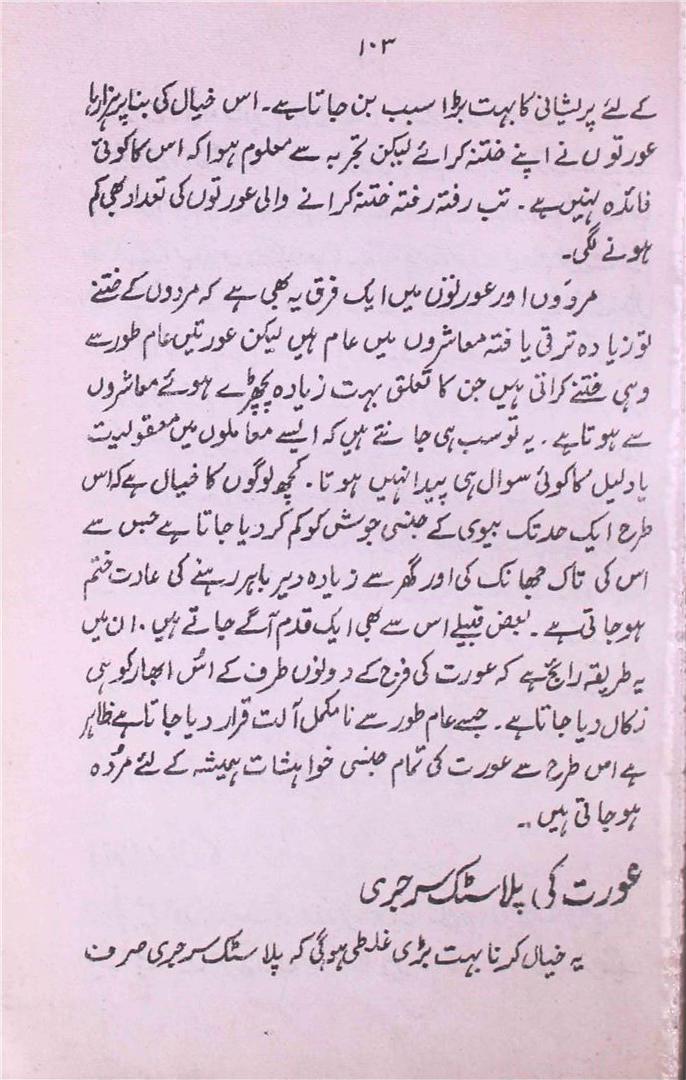 ۱۰۳
کے لئے پریشانی کا بہت بڑا سبب بن جاتا ہے۔ اس خیال کی بنا پر ہزارہا
عورتوں نے اپنے ختنہ کرائے لیکن تجربہ سے معلوم ہوا کہ اس کا کوئی
فائدہ نہیں ہے۔ تب رفتہ رفتہ ختنہ کرانے والی عورتوں کی تعداد بھی کم
ہونے لگی۔
مردوں اور عورتوں میں ایک فرق یہ بھی ہے کہ مردوں کے ختنے
تو زیادہ ترقی یافتہ معاشروں میں عام ہیں لیکن عورتیں عام طور سے
وہی ختنے کراتی ہیں جن کا تعلق بہت زیادہ پچھڑے ہوئے معاشروں
سے ہوتا ہے۔ یہ تو سب ہی جانتے ہیں کہ ایسے معاملوں میں معقولیت
یا دلیل کا کوئی سوال ہی پیدا نہیں ہوتا۔ کچھ لوگوں کا خیال ہے کہ اس
طرح ایک حد تک بیوی کے جنسی جوش کو کم کر دیا جاتا ہے جس سے
اس کی تاک جھانک کی اور گھر سے زیادہ دیر باہر رہنے کی عادت ختم
ہو جاتی ہے۔ بعض قبیلے اس سے بھی ایک قدم آگے جاتے ہیں۔ ان میں
یہ طریقہ رائج ہے کہ عورت کی فرج کے دونوں طرف کے اُس ابھار کو ہی
نکال دیا جاتا ہے۔ جسے عام طور سے نامکمل آلت قرار دیا جاتا ہے ظاہر
ہے اس طرح سے عورت کی تمام جنسی خواہشات ہمیشہ کے لئے مُردہ
ہو جاتی ہیں۔
عورت کی پلاسٹک سرجری
یہ خیال کرنا بہت بڑی غلطی ہوگی کہ پلاسٹک سرجری صرف